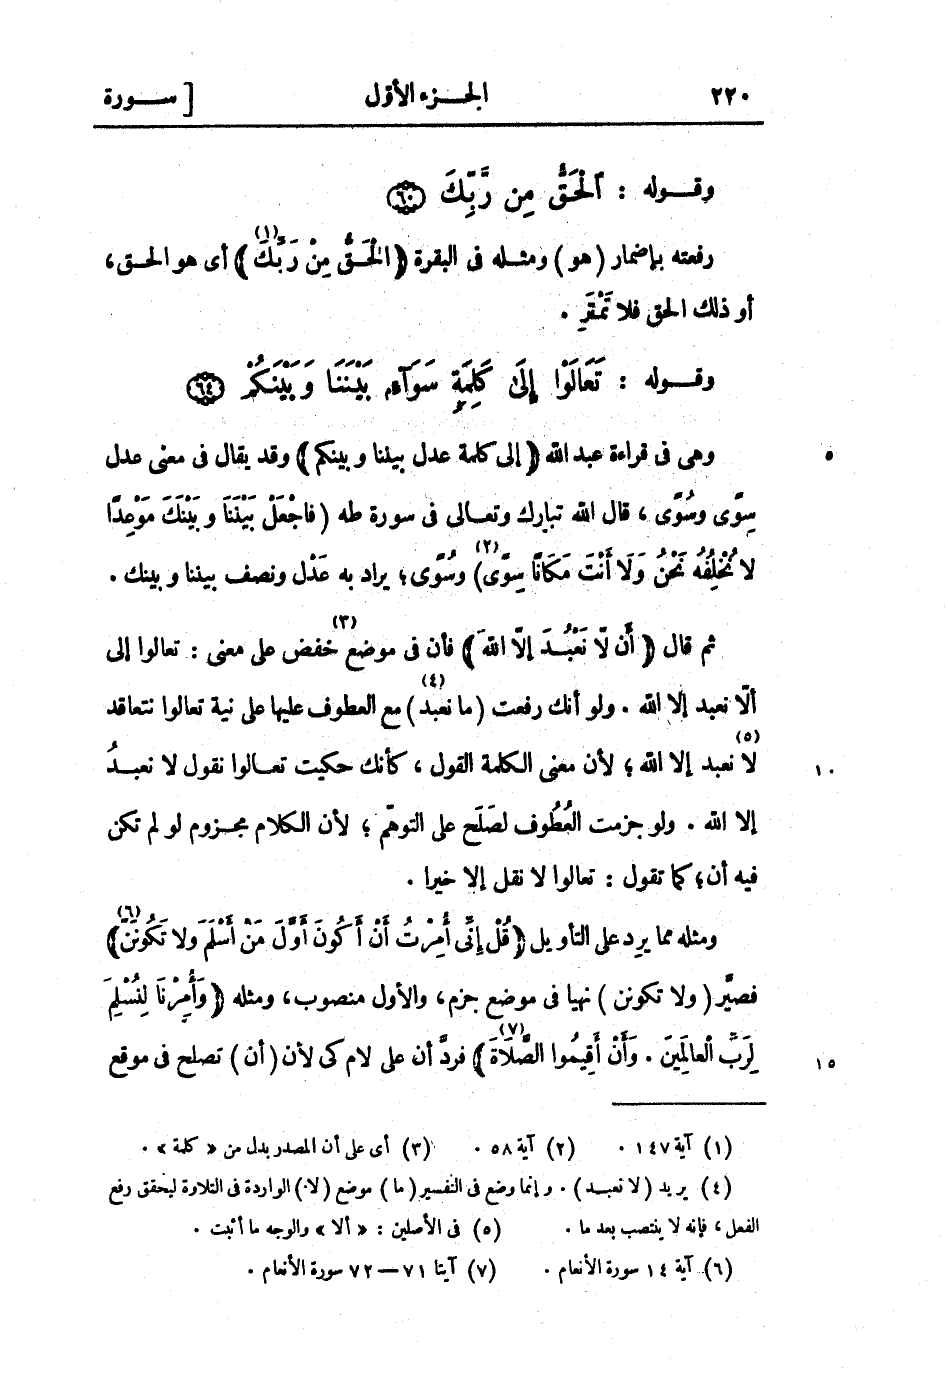 ٢٢٠ الجـزء الأول [ ســورة
وقـوله : ٱلْحَقُّ مِن رَّبِّكَ ٦٠
رفعته بإضمار (هو) ومثـله فى البقرة ﴿الْحَقُّ مِنْ رَبِّكَ﴾ (١) أى هو الحـق،
أو ذلك الحق فلا تَمْتَرِ .
وقـوله : تَعَالَوْا إِلَىٰ كَلِمَةٍ سَوَآءٍ بَيْنَنَا وَبَيْنَكُمْ ٦٤
وهى فى قراءة عبد الله ﴿إلى كلمة عدل بيننا وبينكم﴾ وقد يقال فى معنى عدل ٥
سِوًى وسُوًى ، قال الله تبارك وتعـالى فى سورة طه ﴿فَاجْعَلْ بَيْنَنَا وَبَيْنَكَ مَوْعِدًا
لا نُخْلِفُهُ نَحْنُ وَلَا أَنْتَ مَكَانًا سِوًى﴾ (٢) وسُوًى؛ يراد به عَدْل ونصف بيننا وبينك .
ثم قال ﴿أَن لّا نَعْبُـدَ إلّا اللهَ﴾ فأن فى موضع (٣) خفض على معنى : تعالوا إلى
ألّا نعبد إلا الله . ولو أنك رفعت (ما نعبد) (٤) مع العطوف عليها على نية تعالوا نتعاقد
لا (٥) نعبد إلا الله ؛ لأن معنى الكلمة القول ، كأنك حكيت تعـالوا نقول لا نعبـدُ ١٠
إلا الله . ولو جزمت العُطُوف لصَلَح على التوهّم ؛ لأن الكلام مجـزوم لو لم تكن
فيه أن؛ كما تقول : تعالوا لا نقل إلا خيرا .
ومثله مما يرد على التأويل ﴿قُلْ إِنِّى أُمِرْتُ أَنْ أَكُونَ أَوَّلَ مَنْ أَسْلَمَ ولا تَكُونَنَّ﴾ (٦)
فصيَّر (ولا تكونن) نهيا فى موضع جزم، والأول منصوب، ومثله ﴿وَأُمِرْنَا لِنُسْلِمَ
لِرَبِّ الْعالَمِينَ . وَأَنْ أَقِيمُوا الصَّلَاةَ﴾ (٧) فردَّ أن على لام كى لأن (أن) تصلح فى موقع ١٥
(١) آية ١٤٧ . (٢) آية ٥٨ . (٣) أى على أن المصدر بدل من « كلمة » .
(٤) يريد (لا نعبـد) . وإنما وضع فى التفسير (ما) موضع (لا) الواردة فى التلاوة ليحقق رفع
الفعل ، فإنه لا ينتصب بعد ما . (٥) فى الأصلين : « ألا » والوجه ما أثبت .
(٦) آية ١٤ سورة الأنعام . (٧) آيتا ٧١ — ٧٢ سورة الأنعام .